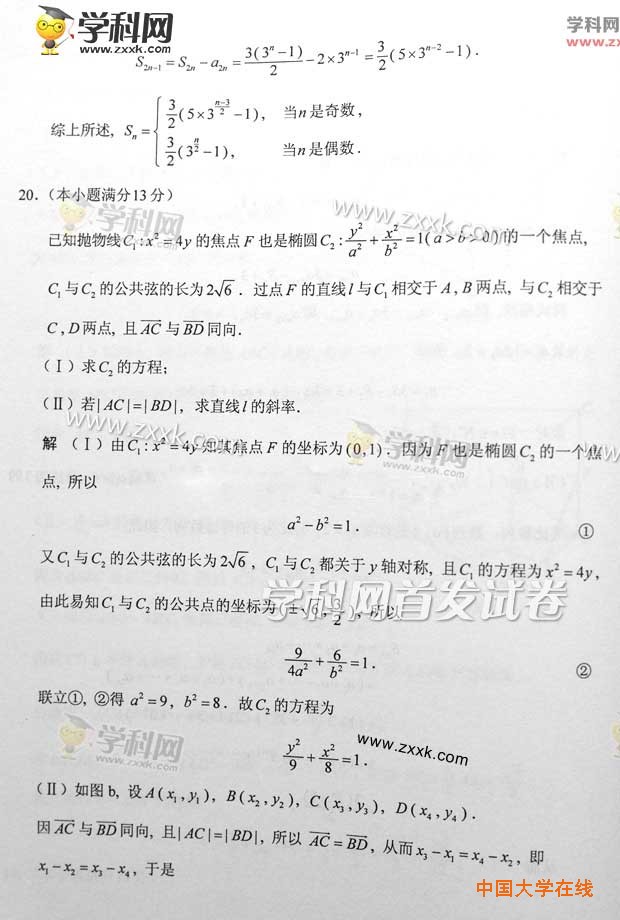 学科网
www.zxxk.com
学科网
www.zxxk.
S_{2n-1} = S_{2n} - a_{2n} = \frac{3(3^n-1)}{2} - 2×3^{n-1} = \frac{3}{2}(5×3^{n-2}-1).
综上所述, S_n = { \frac{3}{2}(5×3^{\frac{n-3}{2}}-1), 当n是奇数,
\frac{3}{2}(3^{\frac{n}{2}}-1), 当n是偶数.
20.（本小题满分13分）
学科网
www.zxxk.com
已知抛物线C₁:x²=4y的焦点F也是椭圆C₂:\frac{y²}{a²}+\frac{x²}{b²}=1(a>b>0)的一个焦点,
C₁与C₂的公共弦的长为2√6. 过点F的直线l与C₁相交于A,B两点, 与C₂相交于
C,D两点, 且\overline{AC}与\overline{BD}同向.
（Ⅰ）求C₂的方程;
（Ⅱ）若|AC|=|BD|, 求直线l的斜率.
www.zxxk.com
学科网
www.zxxk.com
解 （Ⅰ）由C₁:x²=4y知其焦点F的坐标为(0,1). 因为F也是椭圆C₂的一个焦
点, 所以
a²-b²=1. ①
又C₁与C₂的公共弦的长为2√6, C₁与C₂都关于y轴对称, 且C₁的方程为x²=4y,
由此易知C₁与C₂的公共点的坐标为(±√6,\frac{3}{2}), 所以
学科网首发试卷
\frac{9}{4a²}+\frac{6}{b²}=1. ②
联立①, ②得a²=9, b²=8. 故C₂的方程为
学科网
www.zxxk.com
\frac{y²}{9}+\frac{x²}{8}=1.
www.zxxk.com
（Ⅱ）如图b, 设A(x₁,y₁), B(x₂,y₂), C(x₃,y₃), D(x₄,y₄).
因\overline{AC}与\overline{BD}同向, 且|AC|=|BD|, 所以\overline{AC}=\overline{BD}, 从而x₃-x₁=x₄-x₂, 即
x₁-x₂=x₃-x₄, 于是
中国大学在线